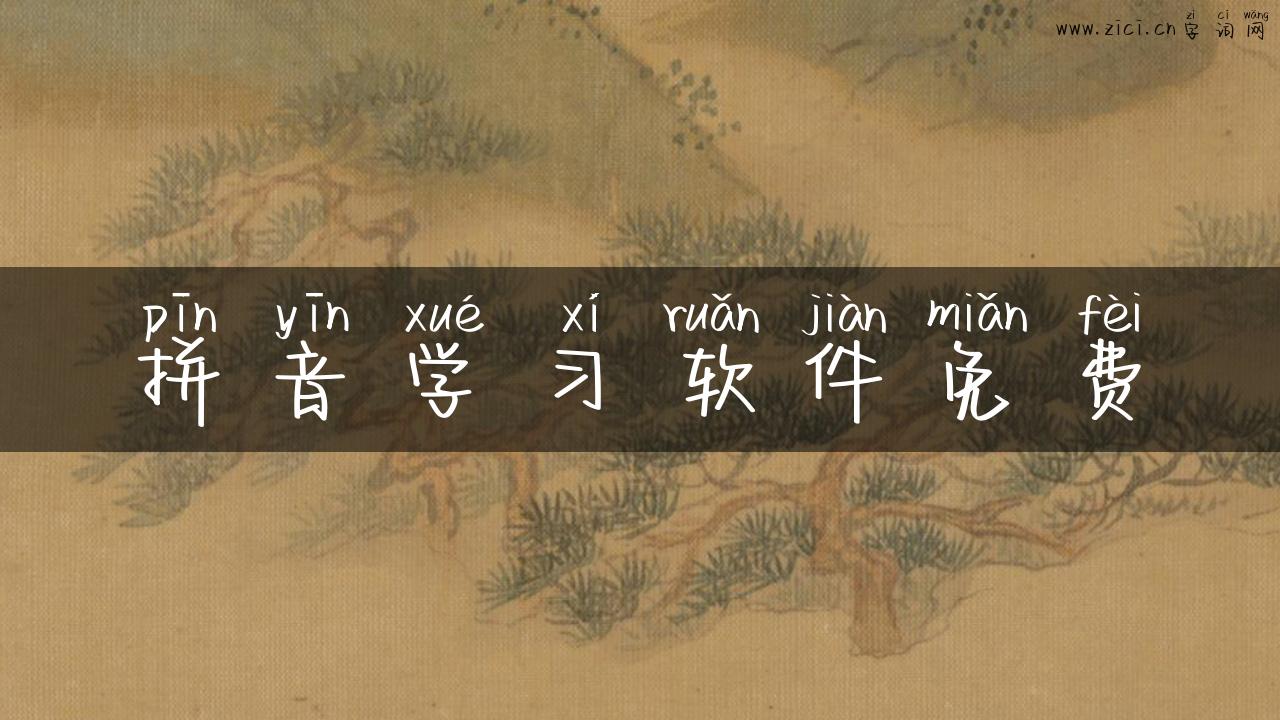 zì cí wǎng
www.zici.cn 字 词 网
pīn yīn xué xí ruǎn jiàn miǎn fèi
拼 音 学 习 软 件 免 费